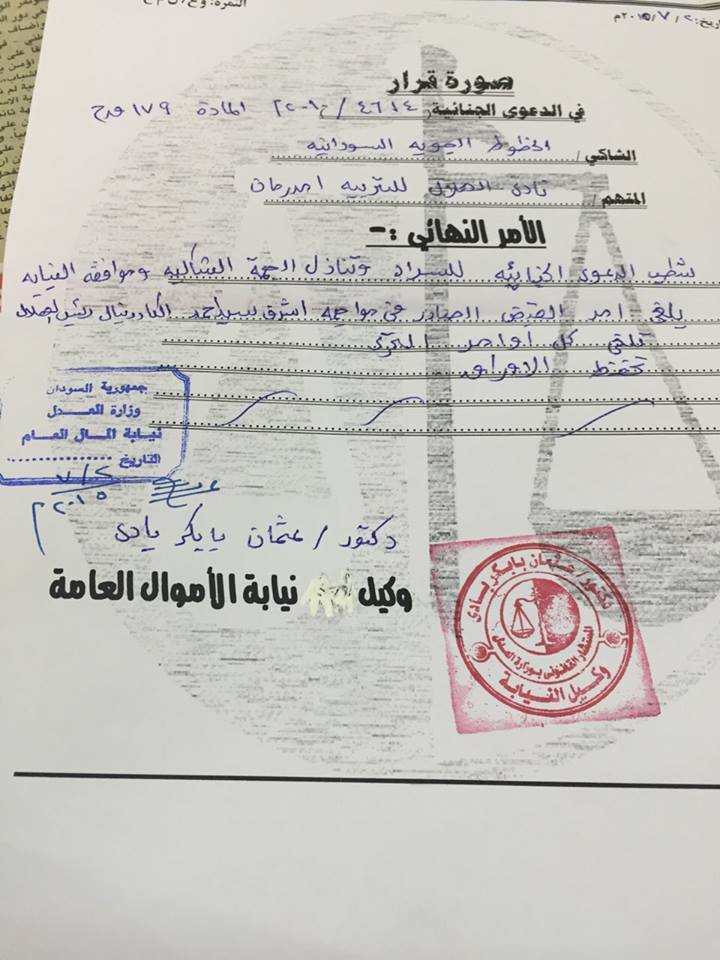 ٢٠١٥/٧/٢م
صورة قرار
في الدعوى الجنائية ٤٦١٤/ المادة ١٧٩ ق ج
الشاكي/ الخطوط الجويه السودانيه
المتهم/ نادى الهلال للتربيه امدرمان
الأمر النهائي :-
شطب الدعوى الجنائيه للسداد وتنازل الجهة الشاكيه وموافقه النيابه
يلغى امر القبض الصادر في مواجهة اشرف سيد احمد الكاردينال رئيس الهلال
تلغى كل اوامر التحرى
تحفظ الاوراق
جمهورية السودان
وزارة العدل
نيابة المال العام
التاريخ
٧/٢
٢٠١٥م
دكتور / عثمان بابكر يادى
وكيل نيابة الأموال العامة
دكتور/ عثمان بابكر يادى
المستشار القانونى بوزارة العدل
وكيل النيابة